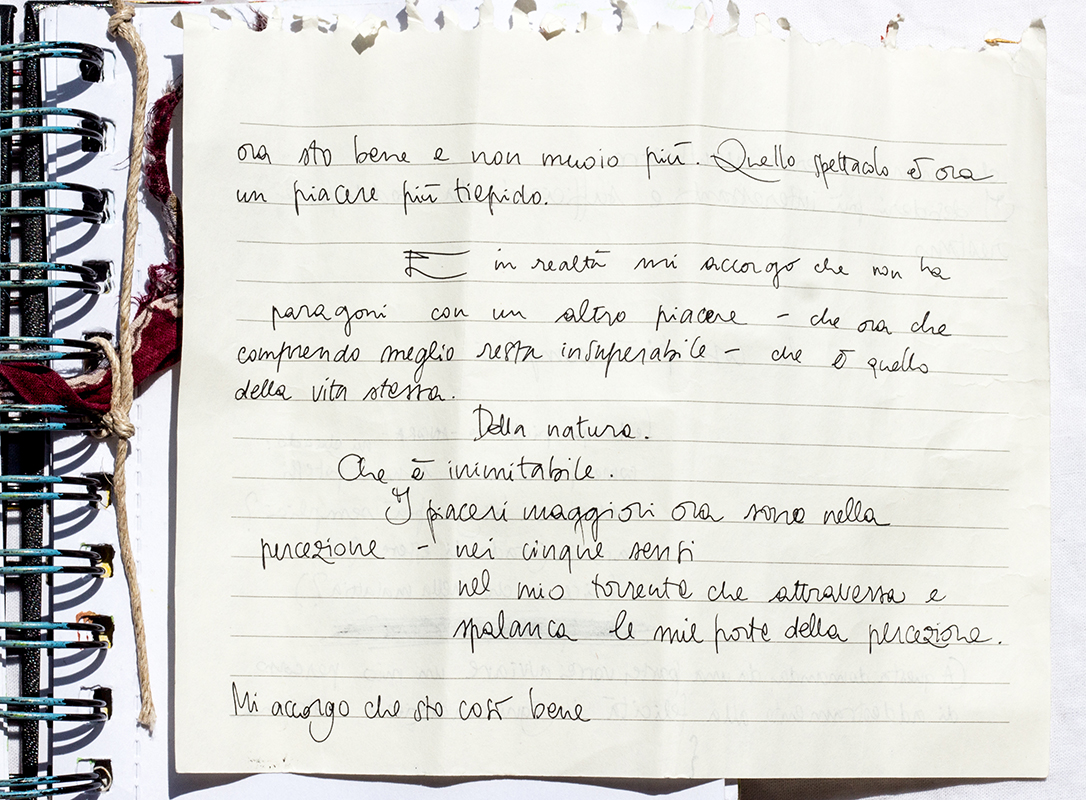 ora sto bene e non muoio più. Quello spettacolo è ora
un piacere più tiepido.
E in realtà mi accorgo che non ha
paragoni con un altro piacere – che ora che
comprendo meglio resta insuperabile – che è quello
della vita stessa.
Della natura.
Che è inimitabile.
I piaceri maggiori ora sono nella
percezione – nei cinque sensi
nel mio torrente che attraversa e
spalanca le mie porte della percezione.
Mi accorgo che sto così bene